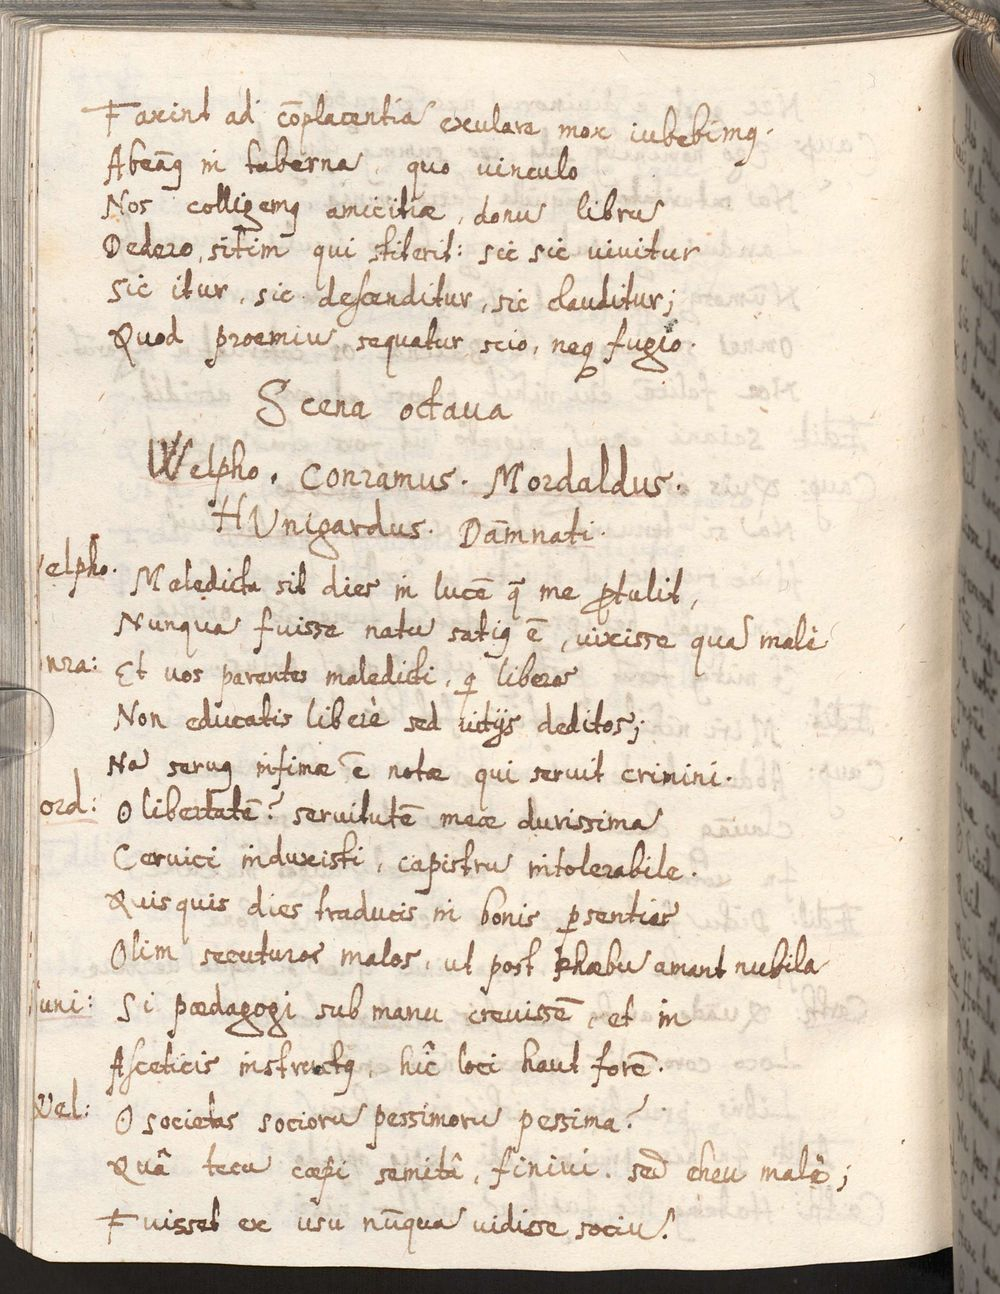 Faxint ad cōplacentiā exulare mox iubebimꝯ.
Abeāꝯ in taberna, quo uinculo
Nos colligemꝯ amicitiæ, donū librū
Dedero, sitim qui stiterit: sic sic uiuitur
Sic itur, sic descenditur, sic clauditur;
Quod proemiū sequatur scio, neqꝫ fugio.
Scena octaua
Welpho. Conramus. Mordaldus.
HUnigardus. Dam̄nati.
elpho. Maledicta sit dies in lucē q̄ me ꝓtulit,
Nunquā fuisse natū satiꝯ ē, uixisse quā malè
nra: Et uos parentes maledicti, qi liberos
Non educatis liberè sed vitijs deditos;
Nā seruꝯ infimæ ē notæ qui seruit crimini.
ord: O libertatē? seruitutē meæ durissimā
Ceruici induxisti, capistrū intolerabile.
Quisquis dies traducis in bonis pꝛsenties
Olim secuturos malos, ut post phæbū amant nubila
uni: Si pædagogi sub manu creuissē, et in
Asceticis instructꝯ, hîc loci haut forē.
Vel: O societas sociorū pessimorū pessima?
Quā tecū cæpi semitā, finiui. sed eheu malè;
Fuisset ex usu nūquā uidisse sociū!